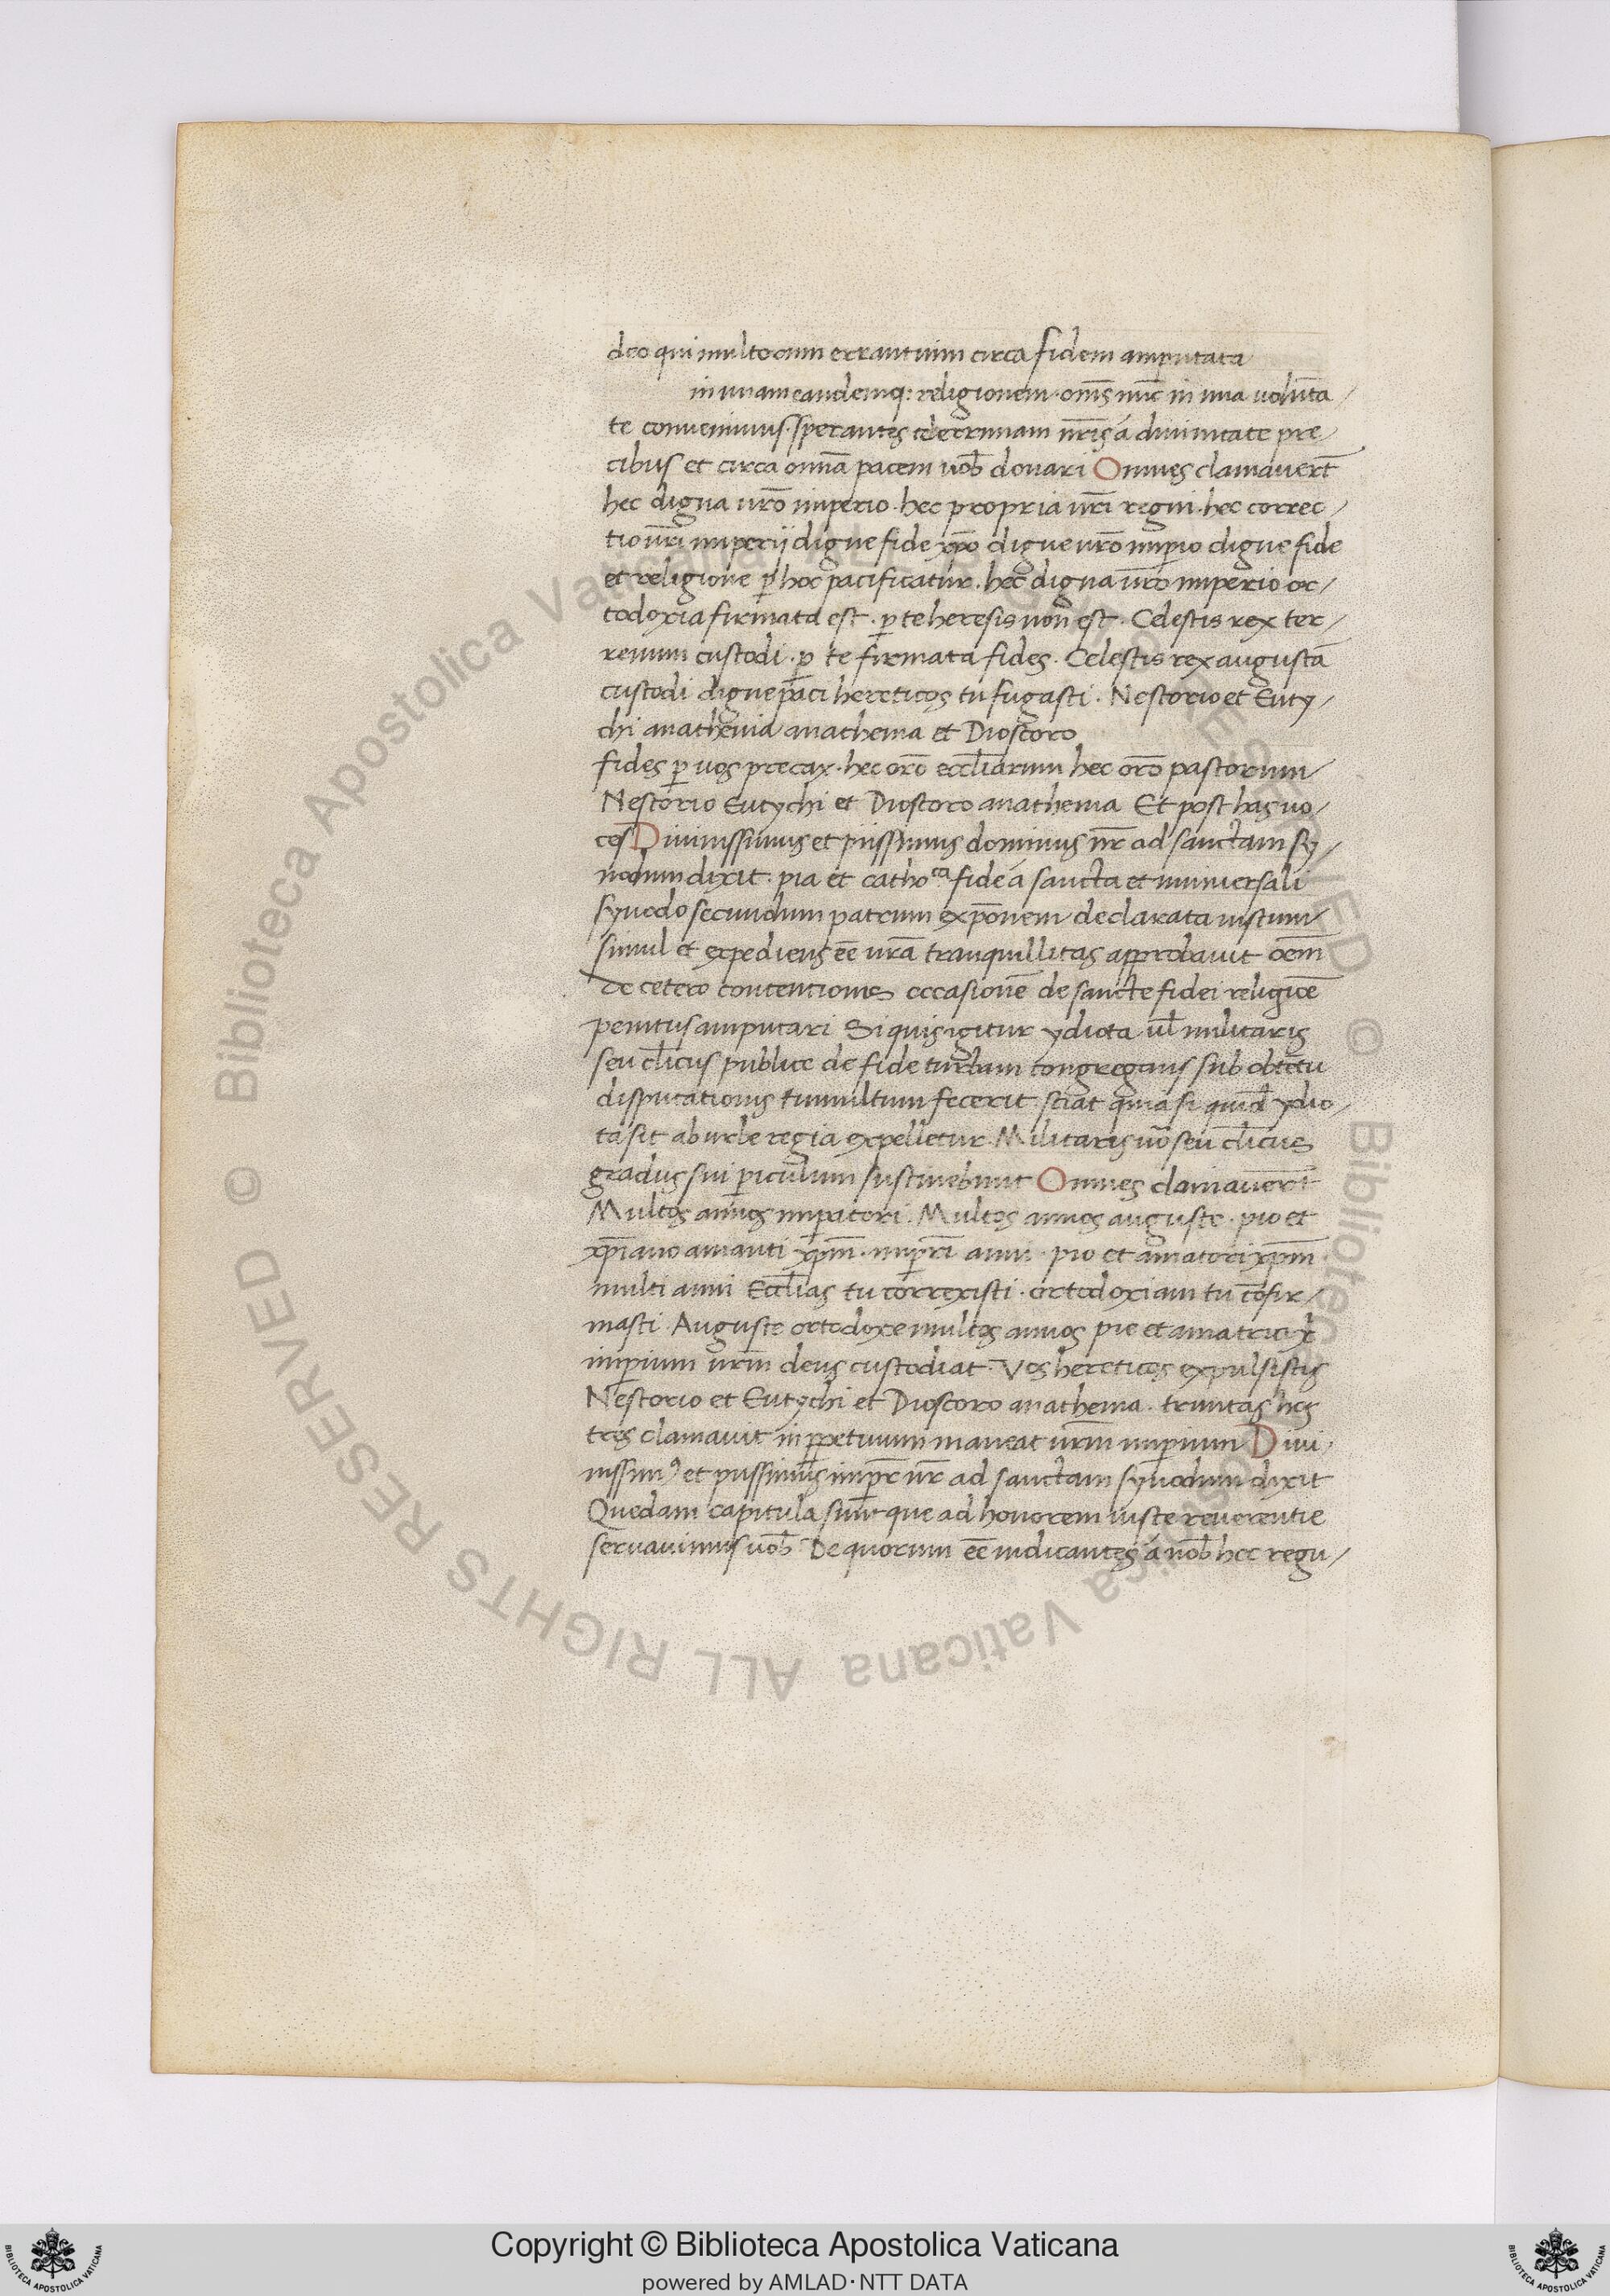 deo qui multorum errantium circa fidem amputata
in unam eandemq: religionem · om̄s nūc in una volūta /
te convenimus · sperantes celerrimam nr̄is á divinitate pre /
cibus et circa omnā pacem vob̄ donari Omnes clamauer̄t
hec digna vr̄o imperio · hec propria vr̄i regni · hec correc /
tio vr̄i imperij digne fide xp̄o digne vr̄o imp̄io digne fide
et religione p̄ hoc pacificatur · hec digna vr̄o imperio or /
todoxia firmata est · p̄ te heresis non est · Celestis rex ter /
renum custodi · p̄ te firmata fides · Celestis rex augustā
custodi digne paci hereticos tu fugasti · Nestorio et Euty /
chi anathema anathema et Dioscoro
fides p̄ vos precax · hec or̄o eccl̄iarum hec or̄o pastorum /
Nestorio Eutychi et Dioscoro anathema Et post has vo /
ces Divinissimus et piissimus dominus nr̄ ad sanctam sy /
nodum dixit · pia et catho^ca fide á sancta et universali
synodo secundum patrum exp̄onem declarata iustum /
simul et expediens eē vr̄a tranquillitas approbavit oēm
de cetero contentionis occasionē de sancte fidei religiōe
penitus amputari Si quis igitur ydiota vl̄ militaris
seu cl̄icus publice de fide turbam congregans sub obtētu
disputationis tumultum fecerit sciat quia si quid̄ ydio /
ta sit ab urbe regia expelletur · Militaris v̄o seu cl̄icus
gradus sui p̄iculum sustinebunt Omnes clamauer̄t
Multos annos imp̄atori · Multos annos auguste · pio et
xp̄iano amanti xp̄m · imp̄ri anni · pio et amatori xp̄m ·
multi anni Eccl̄ias tu correxisti · ortodoxiam tu cōfir /
masti · Auguste ortodoxe multos annos pie et amatrici x̄
imp̄ium vr̄m deus custodiat · Vos hereticos expulsistis
Nestorio et Eutychi et Dioscoro anathema · trinitas hos
tres clamavit in p̄petuum maneat vr̄m imp̄ium Divi /
nissim9 et piissimus imp̄r nr̄ ad sanctam synodum dixit
Quedam capitula sunt que ad honorem iuste reverentie
servavimus vob̄ · De quorum eē iudicantes á vob̄ hec regu /
© Biblioteca Apostolica Vaticana ALL RIGHTS RESERVED
© Biblioteca Apostolica Vaticana ALL RIGHTS RESERVED
Copyright © Biblioteca Apostolica Vaticana
powered by AMLAD · NTT DATA
BIBLIOTECA APOSTOLICA VATICANA
BIBLIOTECA APOSTOLICA VATICANA